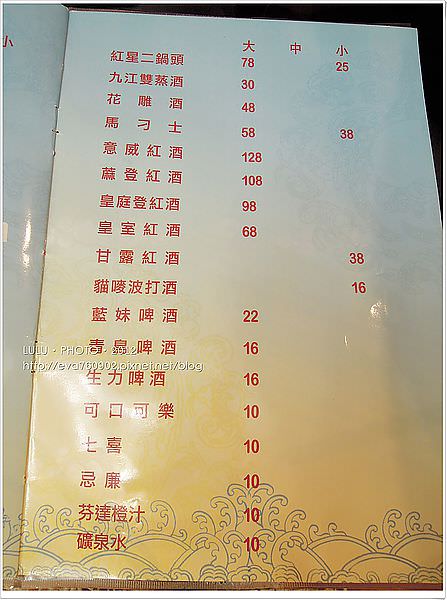 小
大 中 小
紅星二鍋頭 78 25
九江雙蒸酒 30
花雕酒 48
馬刁士 58 38
意威紅酒 128
蘇登紅酒 108
皇庭登紅酒 98
皇室紅酒 68
甘露紅酒 38
貓嘜波打酒 16
藍妹啤酒 22
青島啤酒 16
LULU·PHOTO·
http://eva760902.pixnet.net/blog
生力啤酒 16
可口可樂 10
七喜 10
忌廉 10
芬達橙汁 10
礦泉水 10